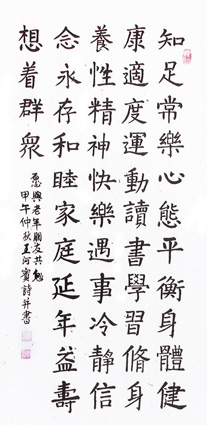 知足常樂心態平衡身體健
康適度運動讀書學習脩身
養性精神快樂遇事冷靜信
念永存和睦家庭延年益壽
想着群衆
與老年朋友共勉
甲午仲秋夏河詩并書